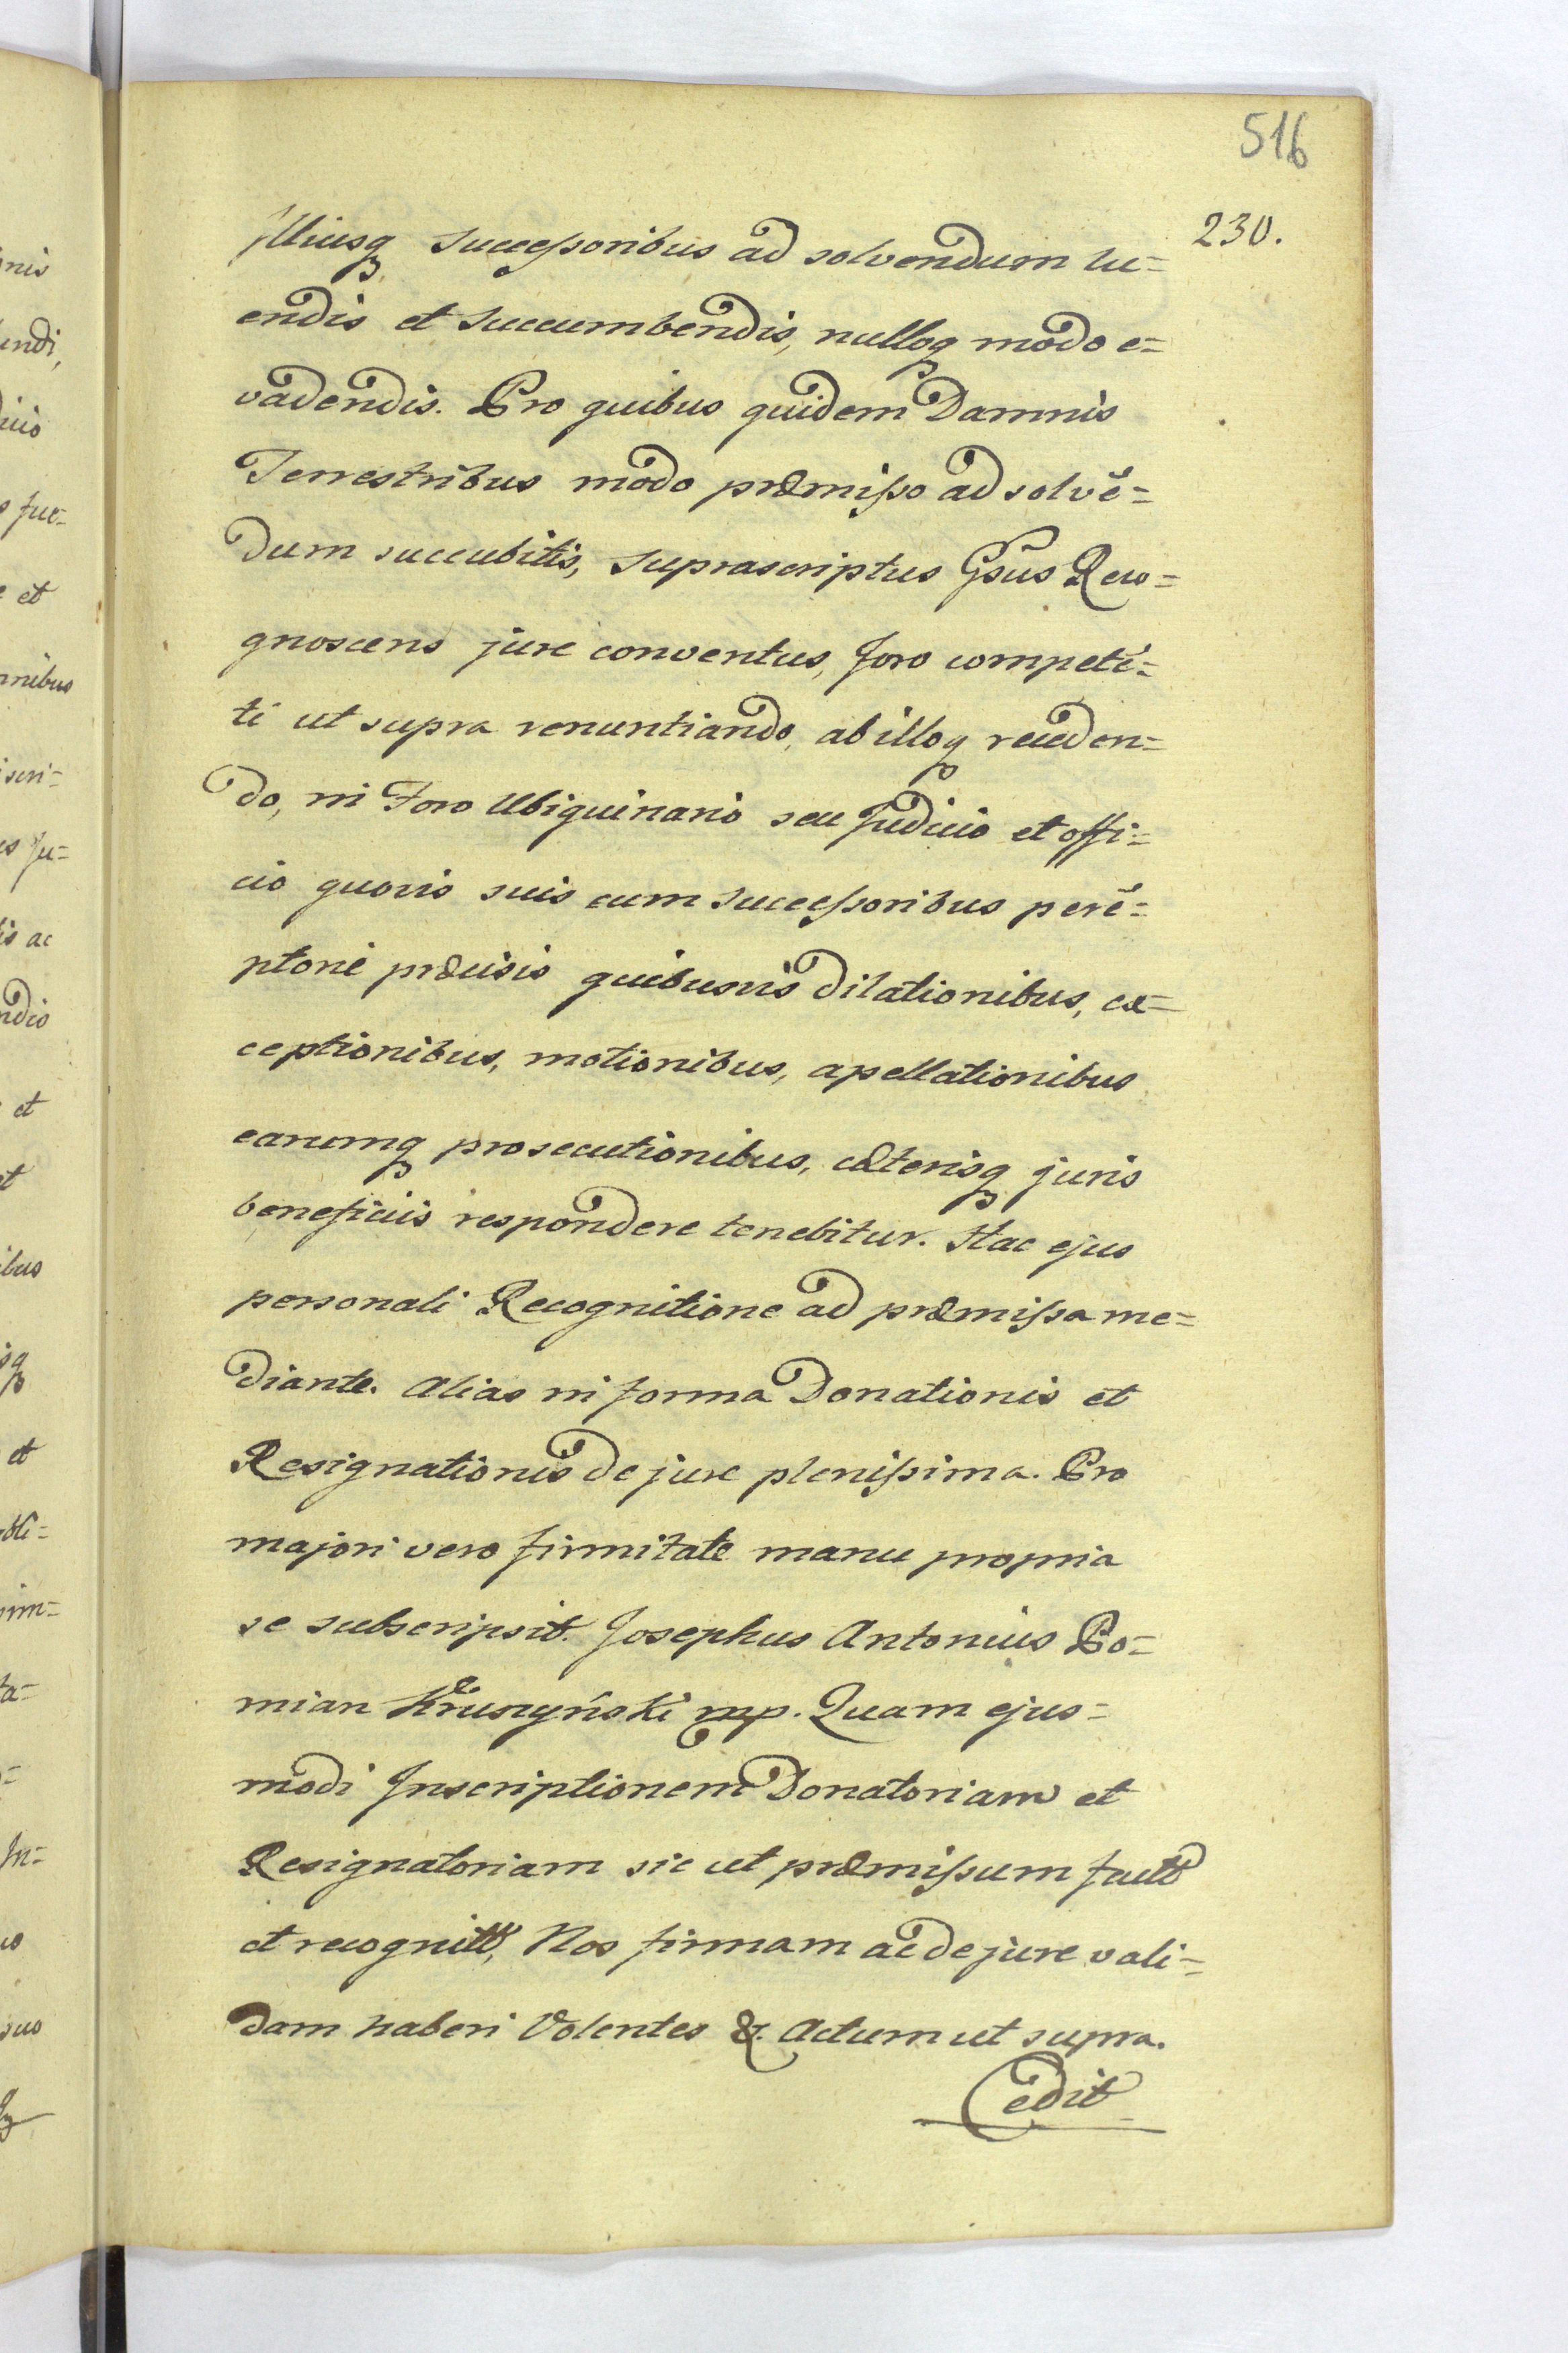 516
230.
Illiusq successoribus ad solvendum lu=
endis et succumbendis, nulloq modo e=
vadendis. Pro quibus quidem Damnis
Terrestribus modo præmisso ad solvē=
dum succubitis, suprascriptus Gsus Reco=
gnoscens jure conventus, Foro competē=
ti ut supra renuntiando, ab illoq receden=
do, in Foro Ubiquinario seu Judicio et offi=
cio quovis suis cum successoribus perē=
ptorie præcisis quibusvis dilationibus, ex=
ceptionibus, motionibus, apellationibus
earumq prosecutionibus, cæterisq juris
beneficiis respondere tenebitur. Hac ejus
personali Recognitione ad præmissa me=
diante. Alias in forma Donationis et
Resignationis de jure plenissima. Pro
majori vero firmitate manu propria
se subscripsit. Josephus Antonius Po=
mian Kruszyński mp. Quam ejus=
modi Inscriptionem Donatoriam et
Resignatoriam sic ut præmissum
et Nos firmam ac de jure vali=
dam haberi Volentes &. Actum ut supra.
Cedit
nis
endi,
et
mnibus
is ac
et
ibus
et